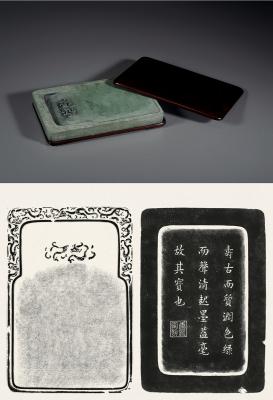 寿古而質潤色綠
而聲清起墨益毫
故其寶也